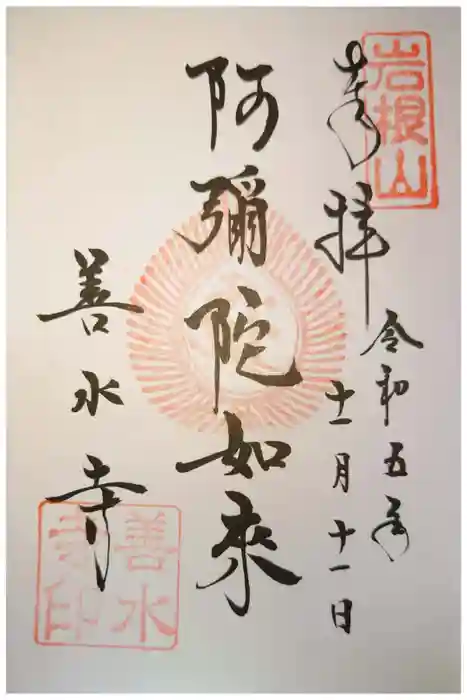 岩根山
奉拝
令和五年
十一月十一日
阿彌陀如來
善水寺
善水
寺印